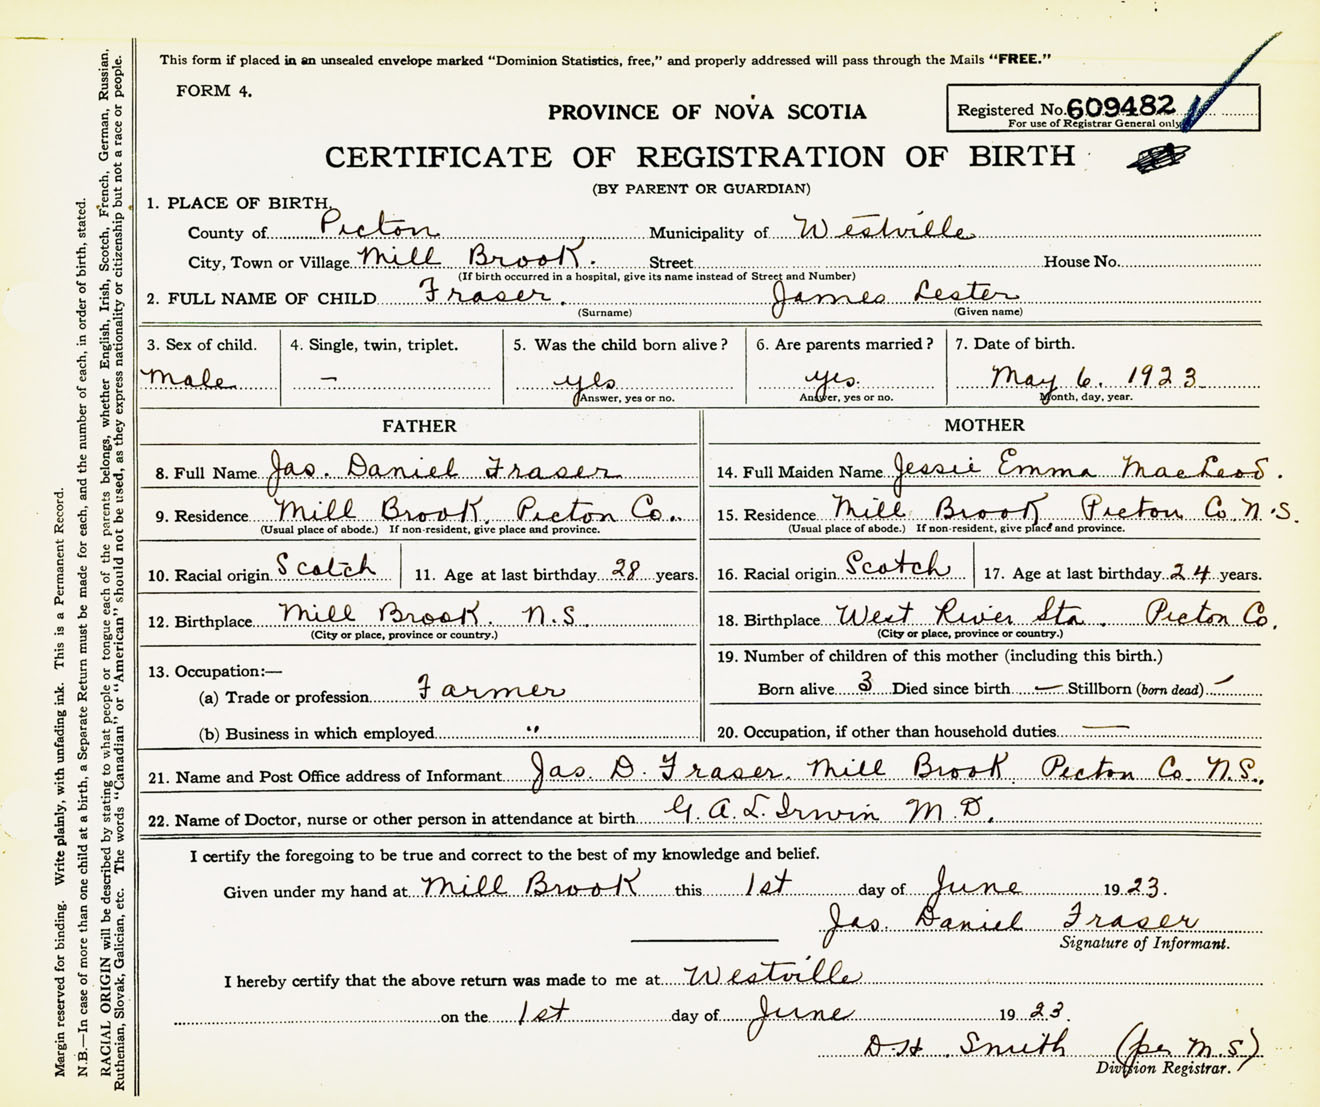 This form if placed in an unsealed envelope marked "Dominion Statistics, free," and properly addressed will pass through the Mails "FREE."
FORM 4.
PROVINCE OF NOVA SCOTIA
Registered No. 609482
For use of Registrar General only
CERTIFICATE OF REGISTRATION OF BIRTH
(BY PARENT OR GUARDIAN)
1. PLACE OF BIRTH,
County of Picton Municipality of Westville
City, Town or Village Mill Brook. Street House No.
(If birth occurred in a hospital, give its name instead of Street and Number)
2. FULL NAME OF CHILD Fraser, James Lester
(Surname) (Given name)
3. Sex of child. 4. Single, twin, triplet. 5. Was the child born alive? 6. Are parents married? 7. Date of birth.
Male — yes yes. May 6. 1923
Answer, yes or no. Answer, yes or no. Month, day, year.
FATHER MOTHER
8. Full Name Jas. Daniel Fraser 14. Full Maiden Name Jessie Emma MacLeod.
9. Residence Mill Brook, Picton Co.. 15. Residence Mill Brook Picton Co. N.S.
(Usual place of abode.) If non-resident, give place and province. (Usual place of abode.) If non-resident, give place and province.
10. Racial origin Scotch 11. Age at last birthday 28 years. 16. Racial origin Scotch 17. Age at last birthday 24 years.
12. Birthplace Mill Brook. N.S. 18. Birthplace West River Sta. Picton Co.
(City or place, province or country.) (City or place, province or country.)
13. Occupation:— 19. Number of children of this mother (including this birth.)
(a) Trade or profession Farmer Born alive 3 Died since birth — Stillborn (born dead) —
(b) Business in which employed " 20. Occupation, if other than household duties —
21. Name and Post Office address of Informant Jas. D. Fraser. Mill Brook Picton Co. N.S.
22. Name of Doctor, nurse or other person in attendance at birth G. A. L. Irwin M.D.
I certify the foregoing to be true and correct to the best of my knowledge and belief.
Given under my hand at Mill Brook this 1st day of June 1923.
Jas. Daniel Fraser
Signature of Informant.
I hereby certify that the above return was made to me at Westville
on the 1st day of June 1923.
D.H. Smith (per M.S)
Division Registrar.
Margin reserved for binding. Write plainly, with unfading ink. This is a Permanent Record.
N.B.—In case of more than one child at a birth, a Separate Return must be made for each, and the number of each, in order of birth, stated.
RACIAL ORIGIN will be described by stating to what people or tongue each of the parents belongs, whether English, Irish, Scotch, French, German, Russian,
Ruthenian, Slovak, Galician, etc. The words "Canadian" or "American" should not be used, as they express nationality or citizenship but not a race or people.